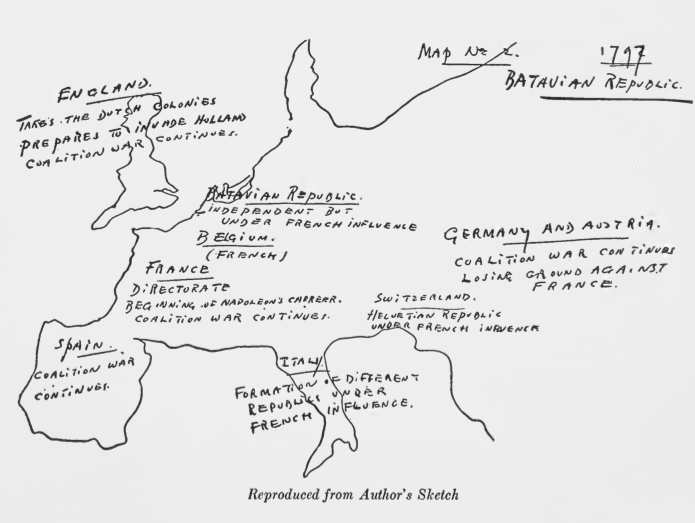 MAP No 2.
1797
BATAVIAN REPUBLIC.
ENGLAND.
TAKES THE DUTCH COLONIES
PREPARES TO INVADE HOLLAND
COALITION WAR CONTINUES.
BATAVIAN REPUBLIC.
INDEPENDENT BUT
UNDER FRENCH INFLUENCE
BELGIUM.
(FRENCH)
GERMANY AND AUSTRIA.
COALITION WAR CONTINUES
LOSING GROUND AGAINST
FRANCE.
FRANCE
DIRECTORATE
BEGINNING OF NAPOLEONS CARREER.
COALITION WAR CONTINUES.
SWITZERLAND.
HELVETIAN REPUBLIC
UNDER FRENCH INFLUENCE
SPAIN.
COALITION WAR
CONTINUES.
ITALY
FORMATION OF DIFFERENT
REPUBLICS UNDER
FRENCH INFLUENCE.
Reproduced from Author's Sketch